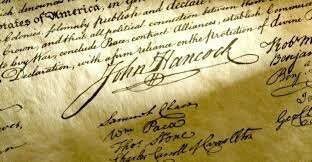 and denounces
States of America, in Gen
solemnly publish and declare
Colonies
Crown, and that all political connection between them
war, conclude Peace contract Alliances, establish Comme
Declaration, with a firm reliance on the protection of divine P
John Hancock
Rob M
Benjam
Benj
Samuel Chase
Wm Paca
Thos Stone
Charles Carroll of Carrollton
Geo